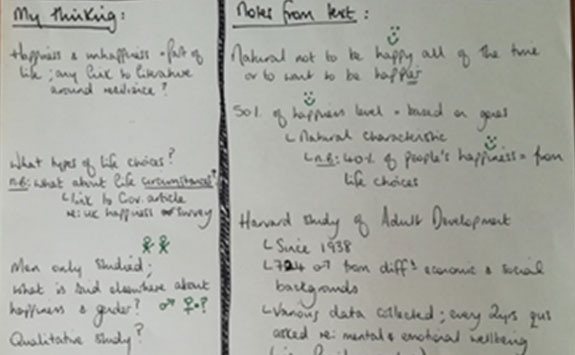 My thinking:
Happiness & unhappiness = part of
life; any link to literature
around resilience?
What types of life choices?
n.B: What about life circumstances?
Link to Gov. article
re: UK happiness survey
Men only studied;
what is said elsewhere about
happiness & gender? ♂ ♀ ?
Qualitative study?
Notes from text:
Natural not to be happy all of the time
or to want to be happier
50% of happiness level = based on genes
Natural characteristic
n.B: 40% of people's happiness = from
life choices
Harvard Study of Adult Development
Since 1938
724 ♂ from diff't economic & social
backgrounds
Various data collected; every 2yrs qus
asked re: mental & emotional wellbeing